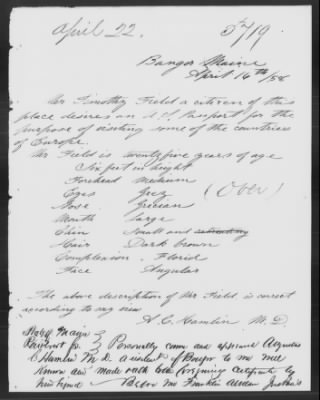 April 22.
5719.
Bangor Maine
April 16th/58
Mr Timothy Field a citizen of this
place desires an U.S. Passport for the
purpose of visiting some of the countries
of Europe.
Mr Field is twenty five years of age
Six feet in height
Forehead Medium
Eyes Grey
(Over)
Nose Grecian
Mouth Large
Chin Small and
Hair Dark brown
Complexion Florid
Face Angular
The above description of Mr Field is correct
according to my view
A. C. Hamlin M. D.
State of Maine }
Penobscot ss. } Personally came and appeared Augustus
C Hamlin M. D. a resident of Bangor to me well
known and made oath to the foregoing certificate by
him signed Before me Franklin Justice